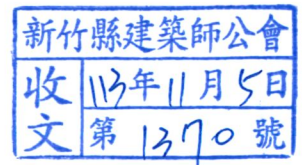 新竹縣建築師公會
收文
113年11月5日
第1370號